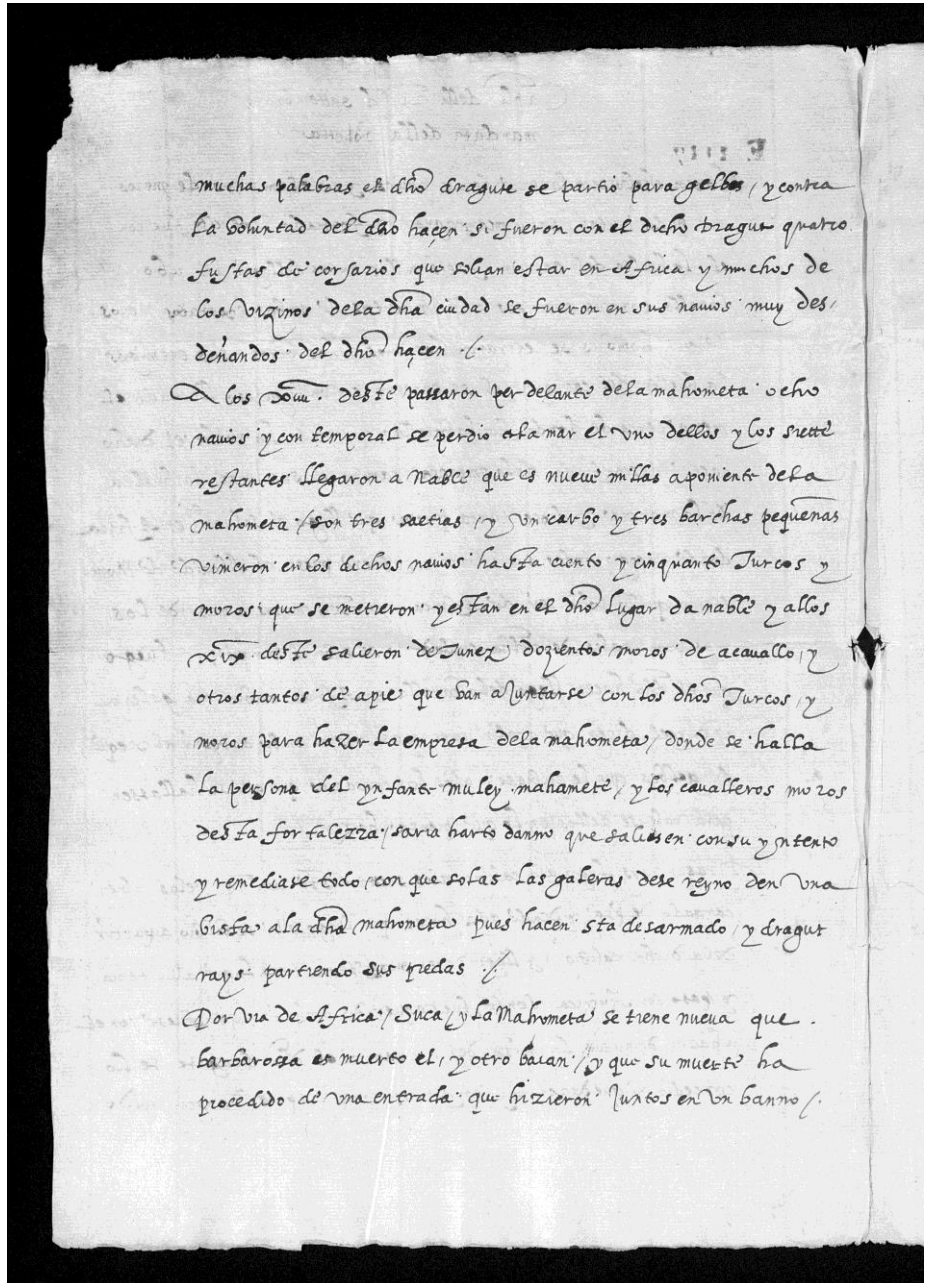 muchas palabras el dho dragute se partio para gelbes / y contra
La voluntad del dho haçen si fueron con el dicho Dragut quatro
fustas de corsarios que solian estar en Africa y muchos de
los vizinos dela dha ciudad se fueron en sus navios muy des-
deñandos del dho haçen ./.
A los xviii. deste passaron per delante dela mahometa ocho
navios y con temporal se perdio ala mar el uno dellos y los siette
restantes llegaron a Nable que es nueve millas a poniente dela
mahometa / son tres saetias, y un carbo y tres barchas pequeñas
vinieron en los dichos navios hasta ciento y cinquanto Turcos y
moros que se metieron y estan en el dho lugar da nable y allos
xix deste salieron de Tunez dozientos moros de acavallo, y
otros tantos de apie que van a Juntarse con los dhos Turcos, y
moros para hazer La empresa dela mahometa / donde se halla
La persona del ynfante muley mahamete / y los cavalleros moros
desta fortalezza / saria harto danno que saliesen con su yntento
y remediase todo, con que solas las galeras dese reyno den una
vista ala dha mahometa pues hacen sta desarmado, y dragut
rays partiendo sus predas ./.
Por via de Africa / Suca / y La Mahometa se tiene nueva que
barbarossa es muerto el, y otro baian / y que su muerte ha
procedido de una entrada que hizieron Juntos en un banno /.